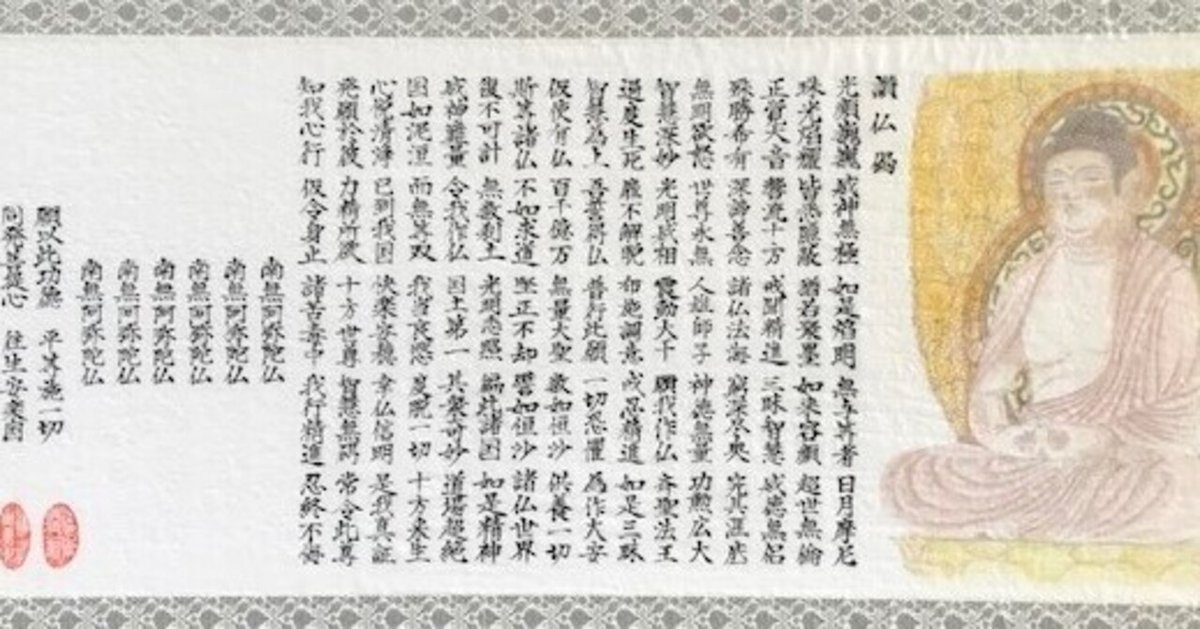 讃仏偈
光顔巍巍 威神無極 如是焔明 無与等者 日月摩尼
珠光焔耀 皆悉隠蔽 猶若聚墨 如来容顔 超世無倫
正覚大音 響流十方 戒聞精進 三昧智慧 威徳無侶
殊勝希有 深諦善念 諸仏法海 窮深尽奥 究其涯底
無明欲怒 世尊永無 人雄師子 神徳無量 功勲広大
智慧深妙 光明威相 震動大千 願我作仏 斉聖法王
過度生死 靡不解脱 布施調意 戒忍精進 如是三昧
智慧為上 吾誓得仏 普行此願 一切恐懼 為作大安
仮使有仏 百千億万 無量大聖 数如恒沙 供養一切
斯等諸仏 不如求道 堅正不却 譬如恒沙 諸仏世界
復不可計 無数刹土 光明悉照 徧此諸国 如是精神
威神難量 令我作仏 国土第一 其衆奇妙 道場超絶
国如泥洹 而無等双 我当哀愍 度脱一切 十方来生
心悦清浄 已到我国 快楽安穏 幸仏信明 是我真証
発願於彼 力精所欲 十方世尊 智慧無碍 常令此尊
知我心行 仮令身止 諸苦毒中 我行精進 忍終不悔
南無阿弥陀仏
南無阿弥陀仏
南無阿弥陀仏
南無阿弥陀仏
南無阿弥陀仏
南無阿弥陀仏
願以此功徳 平等施一切
同発菩提心 往生安楽国